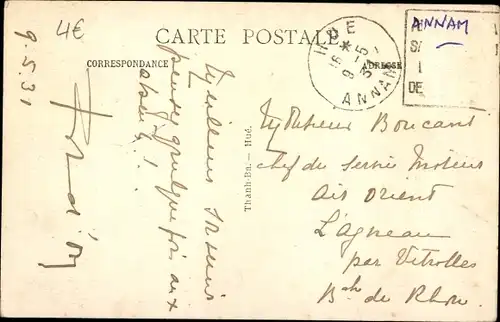 4€
ANNAM
CARTE POSTALE
CORRESPONDANCE
ADRESSE
HUE
*
9-5
31
ANNAM
DE
9.5.31
Meilleurs souvenirs
pensez quelque fois aux
absents !
Thanh-Ba. — Hué.
Monsieur Boucant
Chef du Service Moteurs
Air Orient
L'Agneau
par Vitrolles
Bch du Rhône